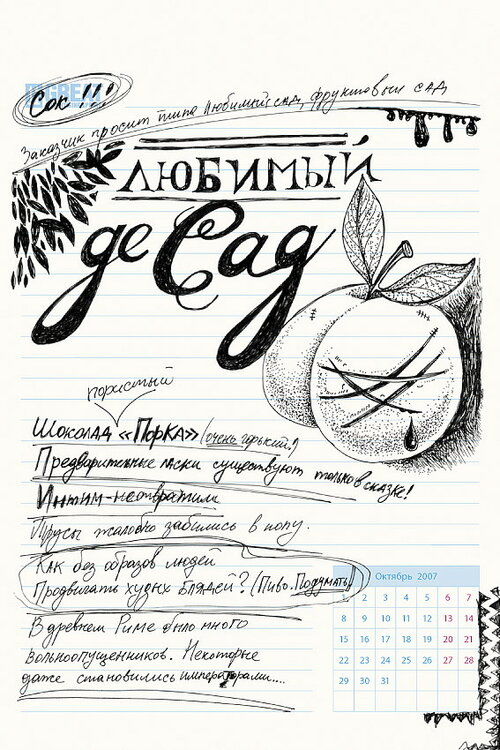 Сок !!!
Заказчик просит типа Любимый сад, фруктовый сад
ЛЮБИМЫЙ
де Сад
пористый
Шоколад «ПорКа» (очень горький.)
Предварительные ласки существуют только в сказке!
Интим-неотвратим
Трусы жалобно забились в попу.
Как без образов людей
Продвигать худых блядей? (Пиво. Подумать)
В древнем Риме было много
вольноопущенников. Некоторые
даже становились императорами....
Октябрь 2007
2 3 4 5 6 7
8 9 10 11 12 13 14
15 16 17 18 19 20 21
22 23 24 25 26 27 28
29 30 31